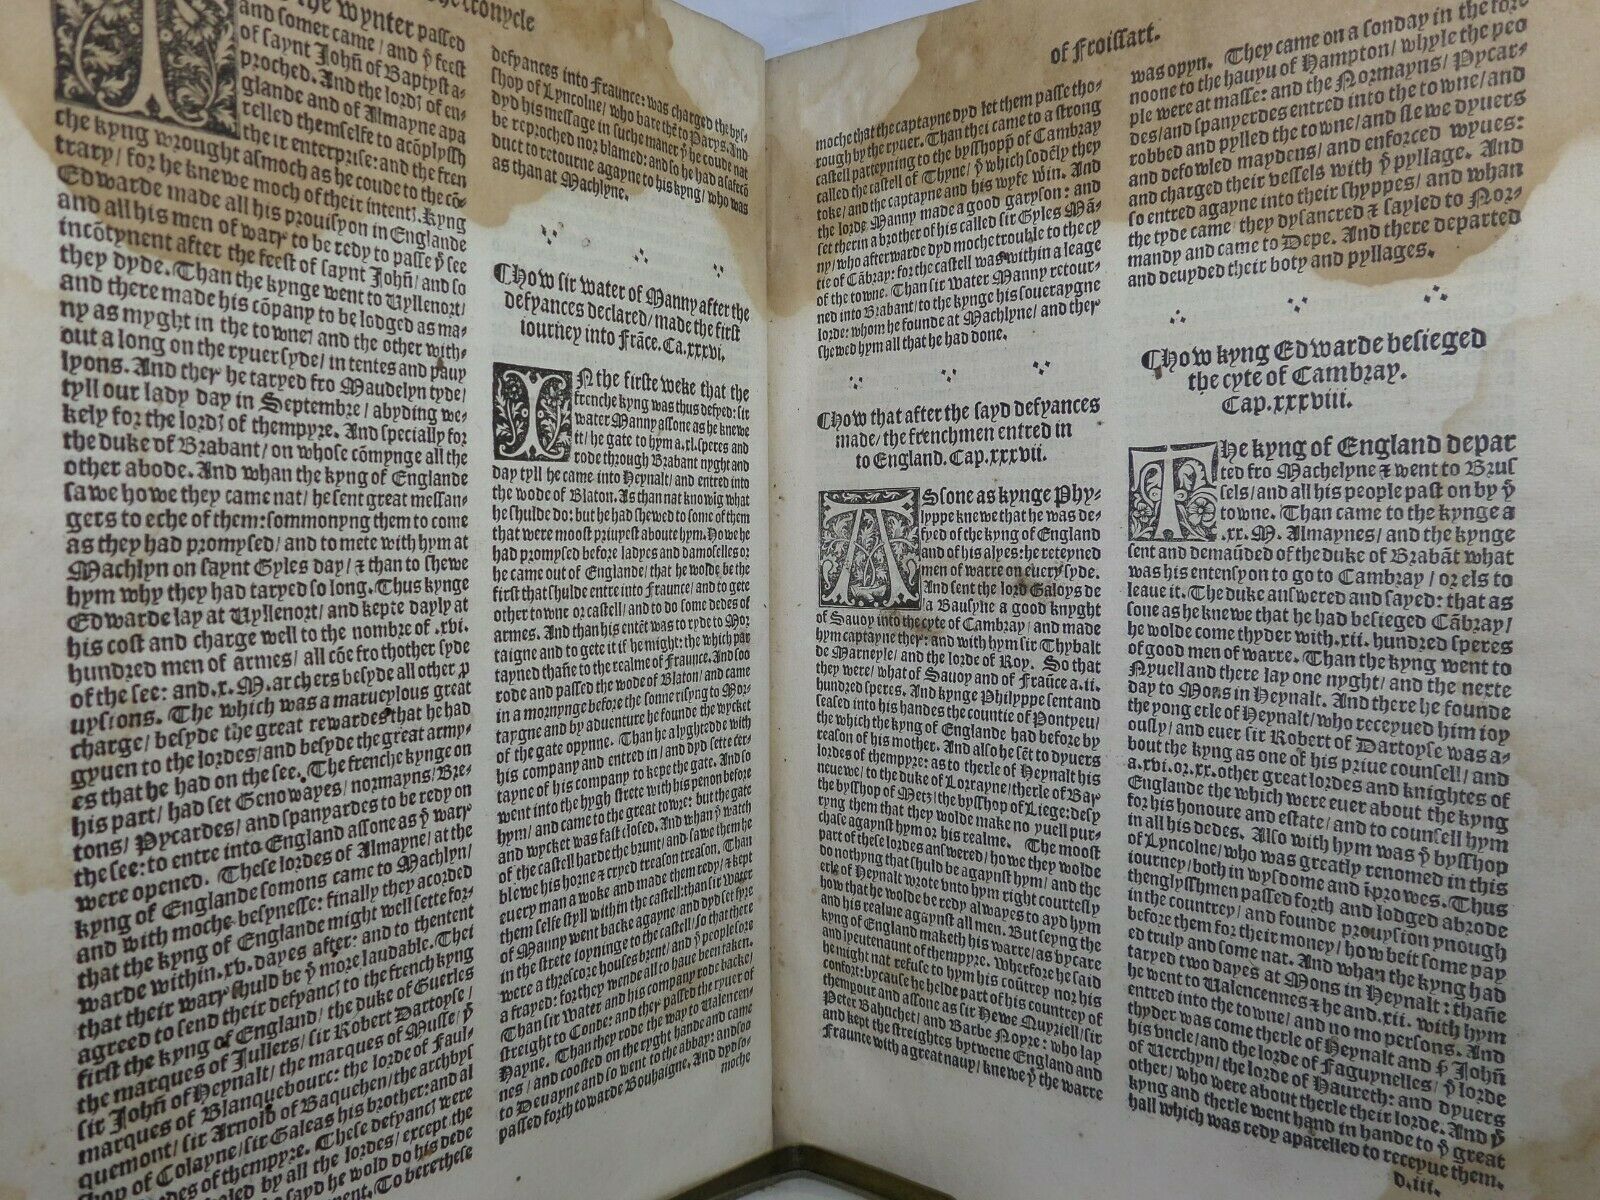 the Cronycle
the wynter passed
and somer came/ and ẏ feest
of saynt Johñ of Baptyst a-
proched. And the lordꝭ of en-
glande and of Almayne apa
relled themselfe to acõplyssh
their enterprise: and the fren
che kyng wrought asmoch as he coude to the cõ-
trary/ for he knewe moch of their intentꝭ. Kyng
Edwarde made all his prouisyon in Englande
and all his men of warr to be redy to passe ẏ see
incõtynent after the feest of saynt Johñ/ and so
they dyde. Than the kynge went to Uyllenort/
and there made his cõpany to be lodged as ma-
ny as myght in the towne/ and the other with-
out a long on the ryuer syde/ in tentes and pauy
lyons. And ther he taryed fro Maudelyn tyde/
tyll our lady day in Septembre/ abyding we-
kely for the lordꝭ of thempyre. And specially for
the duke of Brabant/ on whose cõmynge all the
other abode. And whan the kyng of Englande
sawe howe they came nat/ he sent great messan-
gers to eche of them: sommonyng them to come
as they had promysed/ and to mete with hym at
Machlyn on saynt Gyles day/ & than to shewe
hym why they had taryed so long. Thus kynge
Edwarde lay at Uyllenort/ and kepte dayly at
his cost and charge well to the nombre of .xvi.
hundred men of armes/ all cõe fro thother syde
of the see: and .x. M. archers besyde all other p
uysions. The which was a marueylous great
charge/ besyde the great rewardes that he had
gyuen to the lordes/ and besyde the great army-
es that he had on the see. The frenche kynge on
his part/ had set Genowayes/ normayns/ Bre-
tons/ Pycardes/ and spanyardes to be redy on
the see: to entre into England assone as ẏ warr
were opened. These lordes of Almayne/ at the
kyng of Englande somons came to Machlyn/
and with moche besynesse: finally they acorded
that the kyng of Englande might well sette for-
warde within .xv. dayes after: and to thentent
that their warr shuld be ẏ more laudable. Thei
agreed to send their defyancꝭ to the french kyng
first the kyng of England/ the duke of Guerles
the marques of Jullers/ sir Robert Dartoyse/
sir Johñ of Heynalt/ the marques of Musse/ ẏ
marques of Blanquebourc: the lorde of Faul-
quemont/ sir Arnold of Baquehen/ the archbys
shop of Colayne/ sir Galeas his brother: and al
des of thempyre. These defyancꝭ were
led by all the lordes/ except the
sayd he wold do his dede
nient. To bere these
defyances into Fraunce: was charged the bys-
shop of Lyncolne/ who bare thẽ to Parys. And
dyd his message in suche maner ẏ he coude nat
be reproched nor blamed: and so he had a safecõ
duct to retourne agayne to his kyng/ who was
as than at Machlyne.
¶How sir water of Manny after the
defyances declared/ made the first
iourney into Frãce. Ca.xxxvi.
IN the firste weke that the
frenche kyng was thus defyed: sir
water Manny assone as he knewe
it/ he gate to hym a .xl. speres and
rode through Brabant nyght and
day tyll he came into Heynalt/ and entred into
the wode of Blaton. Is than nat knowig what
he shulde do: but he had shewed to some of them
that were moost priuyest aboute hym. Howe he
had promysed before ladyes and damoselles or
he came out of Englande/ that he wolde be the
first that shulde entre into Fraunce/ and to gete
other towne or castell/ and to do some dedes of
armes. And than his entẽt was to ryde to Mor
taigne and to gete it if he might: the which par
tayned thañe to the realme of Fraunce. And soo
rode and passed the wode of Blaton/ and came
in a mornynge before the sonne risyng to Mor-
taygne and by aduenture he founde the wycket
of the gate opynne. Than he alyghted with
his company and entred in/ and dyd sette cer-
tayne of his company to kepe the gate. And so
went into the hygh strete with his penon before
hym/ and came to the great towre: but the gate
and wycket was fast closed. And whan ẏ watch
of the castell harde the brunt/ and sawe them he
blewe his horne & cryed treason treason. Than
euery man awoke and made them redy/ & kept
them selfe styll within the castell: than sir water
of Manny went backe agayne/ and dyd set fyre
in the strete ioyninge to the castell/ so that there
were a threscore houses brent/ and ẏ people sore
a frayed: for they wende all to haue been taken.
Than sir water and his company rode backe/
streight to Conde: and ther passed the ryuer of
Hayne. Than they rode the way to Ualencen-
nes/ and coosted on the ryght hande and came
to Deuayne and so went to the abbay: and soo
passed forth towarde Bouhaigne. And dyd so-
moche
of Froissart.
moche that the captayne dyd let them passe tho-
rough by the ryuer. Than thei came to a strong
castell parteyning to the bysshopp of Cambray
called the castell of Thyne/ ẏ which sodẽly they
toke/ and the captayne and his wyfe win. And
the lorde Manny made a good garyson: and
set therin a brother of his called sir Gyles Mã-
ny/ who afterwarde dyd moche trouble to the cy
tie of Cãbray: for the castell was within a leage
of the towne. Than sir Water Manny retour-
ned into Brabant/ to the kynge his souerayne
lorde: whom he founde at Machlyne/ and ther
shewed hym all that he had done.
¶How that after the sayd defyances
made/ the frenchmen entred in
to England. Cap.xxxvii.
ASsone as kynge Phy-
lyppe knewe that he was de-
fyed of the kyng of England
and of his alyes: he reteyned
men of warre on euery syde.
And sent the lord Galoys de
la Bausyne a good knyght
of Sauoy into the cyte of Cambray/ and made
hym captayne ther: and with hym sir Thybalt
de Marneyle/ and the lorde of Roy. So that
they were/ what of Sauoy and of Frãuce a .ii.
hundred speres. And kynge Philyppe sent and
seased into his handes the countie of Pontyeu/
the which the kyng of Englande had before by
reason of his mother. And also he sẽt to dyuers
lordes of thempyre: as to therle of Heynalt his
neuewe/ to the duke of Lorrayne/ therle of Bar
the bysshop of Metz/ the bysshop of Liege: desy
ryng them that they wolde make no yuell pur-
chase agaynst hym or his realme. The moost
part of these lordes answered/ howe they wolde
do nothyng that shuld be agaynst hym/ and the
erle of Heynalt wrote vnto hym right courtesly
how that he wolde be redy alwayes to ayd hym
and his realme agaynst all men. But seyng the
kyng of England maketh his warre/ as vycare
and lyeutenaunt of thempyre. Wherfore he said
he might nat refuse to hym his coũtrey nor his
confort: bycause he helde part of his countrey of
thempour and assone as sir Hewe Quyriell/ sir
Peter Bahuchet/ and Barbe Noyre: who lay
and kept the streightes bytwene England and
Fraunce with a great nauy/ knewe ẏ the warre
was opyn. They came on a sonday in the fore
noone to the hauyn of Hampton/ whyle the peo
ple were at masse: and the Normayns/ Pycar-
des/ and spanyerdes entred into the towne/ and
robbed and pylled the towne/ and slewe dyuers
and defowled maydens/ and enforced wyues:
and charged their vessels with ẏ pyllage. And
so entred agayne into their shyppes/ and whan
the tyde came/ they dysancred & sayled to Nor-
mandy and came to Depe. And there departed
and deuyded their boty and pyllages.
¶How kyng Edwarde besieged
the cyte of Cambray.
Cap.xxxviii.
THe kyng of England depar
ted fro Machelyne & went to Brus
sels/ and all his people past on by ẏ
towne. Than came to the kynge a
.xx. M. Almaynes/ and the kynge
sent and demaũded of the duke of Brabãt what
was his entensyon to go to Cambray/ or els to
leaue it. The duke answered and sayed: that as
sone as he knewe that he had besieged Cãbray/
he wolde come thyder with .xii. hundred speres
of good men of warre. Than the kyng went to
Nyuell and there lay one nyght/ and the nexte
day to Mons in Heynalt. And there he founde
the yong erle of Heynalt/ who receyued him ioy
ously/ and euer sir Robert of Dartoyse was a-
bout the kyng as one of his priue counsell/ and
a .xvi. or .xx. other great lordes and knightes of
Englande the which were euer about the kyng
for his honoure and estate/ and to counsell hym
in all his dedes. Also with hym was ẏ bysshop
of Lyncolne/ who was greatly renomed in this
iourney/ both in wysdome and ĩ prowes. Thus
thenglysshmen passed forth and lodged abrode
in the countrey/ and founde prouysion ynough
before them for their money/ how beit some pay
ed truly and some nat. And whan the kyng had
taryed two dayes at Mons in Heynalt: thañe
he went to Ualencennes & he and .xii. with hym
entred into the towne/ and no mo persons. And
thyder was come therle of Heynalt and ẏ Johñ
his vncle/ and the lorde of Faguynelles/ ẏ lorde
of Uerchyn/ the lorde of Haureth: and dyuers
other/ who were about therle their lorde. And ẏ
kyng and therle went hand in hande to ẏ great
hall which was redy aparelled to receyue them.
D.iii.